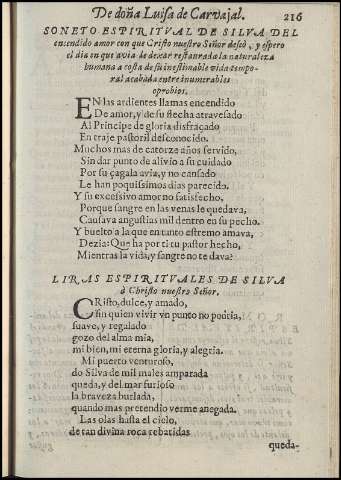 De doña Luisa de Carvajal. 216
SONETO ESPIRITVAL DE SILVA DEL
encendido amor con que Cristo nuestro Señor deseò, y espero
el dia en que avia de dexar restaurada la naturaleza
humana a costa de su inestimable vida tempo-
ral acabada entre inumerables
oprobios.
EN las ardientes llamas encendido
De amor, y de su flecha atravesado
Al Principe de gloria disfraçado
En traje pastoril desconocido.
Muchos mas de catorze años servido,
Sin dar punto de alivio a su cuidado
Por su çagala avia, y no cansado
Le han poquissimos dias parecido.
Y su excessivo amor no satisfecho,
Porque sangre en las venas le quedava,
Causava angustias mil dentro en su pecho.
Y buelto a la que en tanto estremo amava,
Dezia: Que ha por ti tu pastor hecho,
Mientras la vida, y sangre no te dava?
LIRAS ESPIRITVALES DE SILVA
à Christo nuestro Señor.
CRisto, dulce, y amado,
sin quien vivir vn punto no podria,
suave, y regalado
gozo del alma mia,
mi bien, mi eterna gloria, y alegria.
Mi puerto venturoso,
do Silva de mil males amparada
queda, y del mar furioso
la braveza burlada,
quando mas pretendio verme anegada.
Las olas hasta el cielo,
de tan divina roca rebatidas
queda-